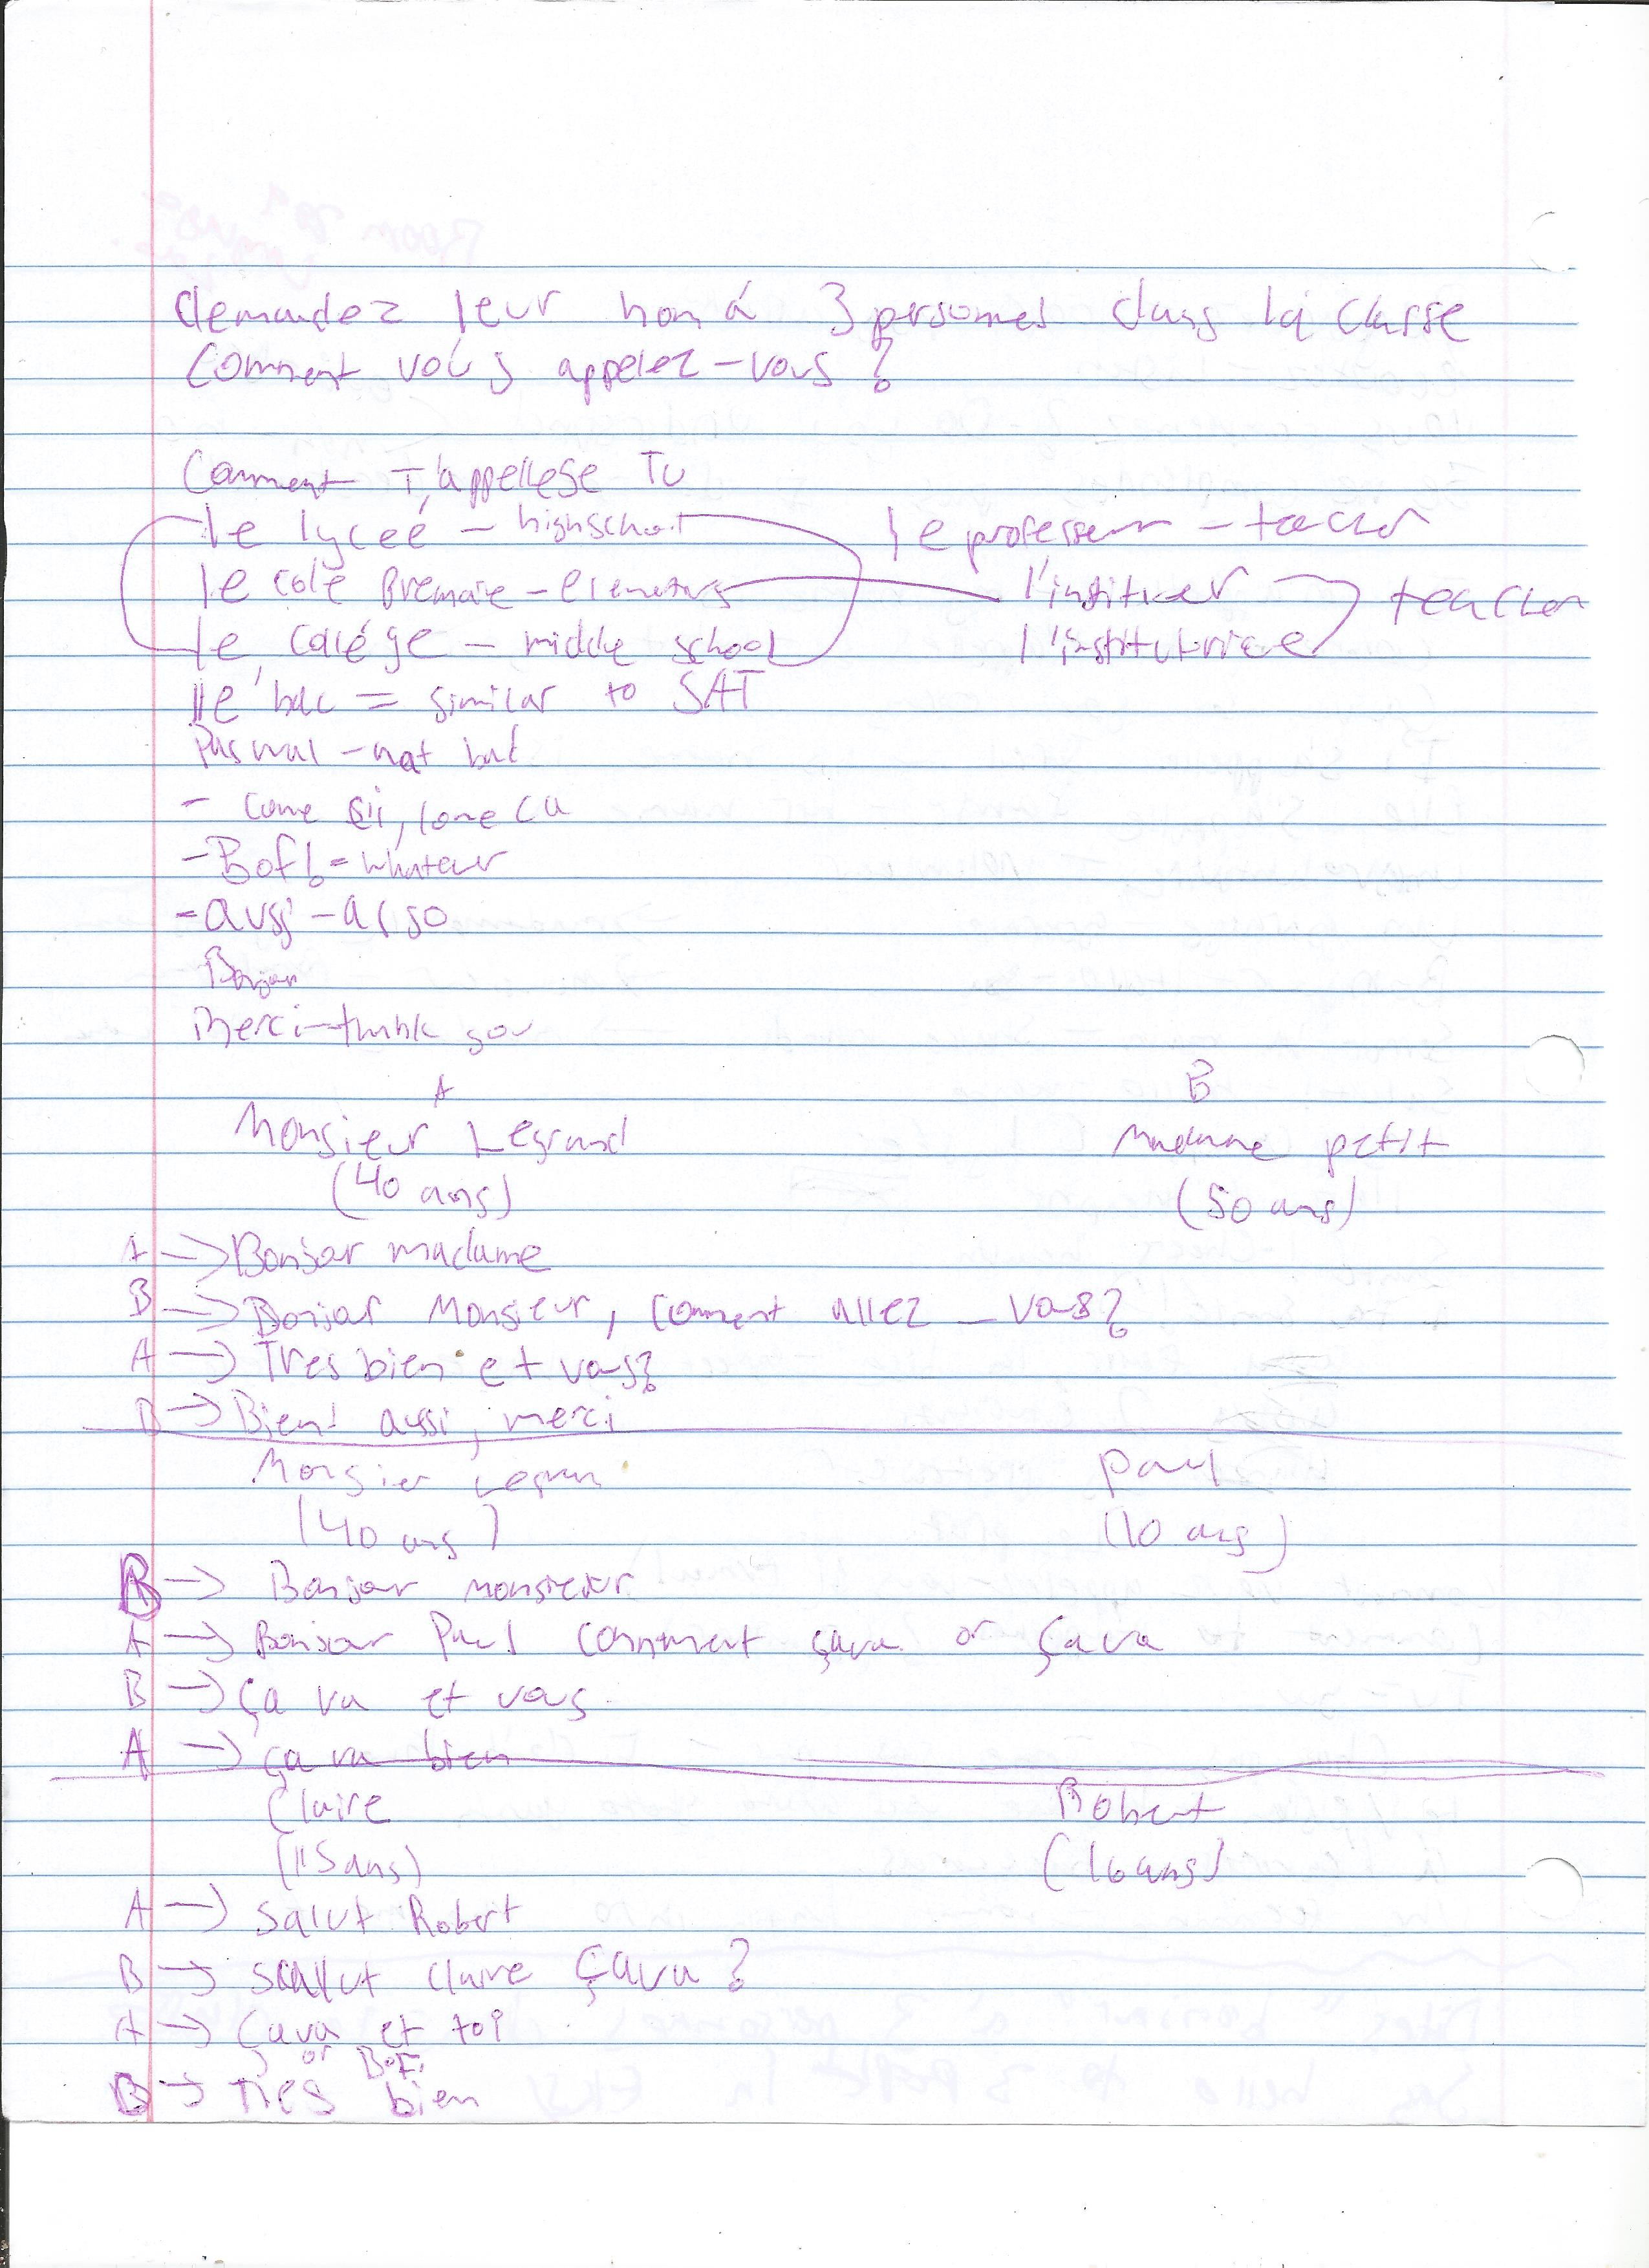 demandez leur nom á 3 personnes dans la classe
Comment vous appelez-vous?
Comment T'appellese Tu
le lyceé - highschool le professeur - teacher
le cole Bremaire - elementary l'instituer teacher
le colége - middle school l'institutorice
lle bac = similar to SAT
Pas mal - not bad
- come çii, come ca
- Bof! = whatever
- aussi - also
Bonjour
Merci - thank you
A B
Monsieur Legrand Madame petit
(40 ans) (50 ans)
A → Bonjour madame
B → Bonjour Monsieur, Comment allez - vous?
A → Tres bien et vous?
B → Bien! aussi, merci
Monsier Legran Paul
(40 ans) (10 ans)
B → Bonjour monsieur
A → Bonjour Paul Comment çava or Çava
B → Ça va et vous
A → ça va bien
Claire Robert
(15 ans) (16 ans)
A → Salut Robert
B → Salut Claire Çava?
A → Çava et toi
or BOF
B → Tres bien